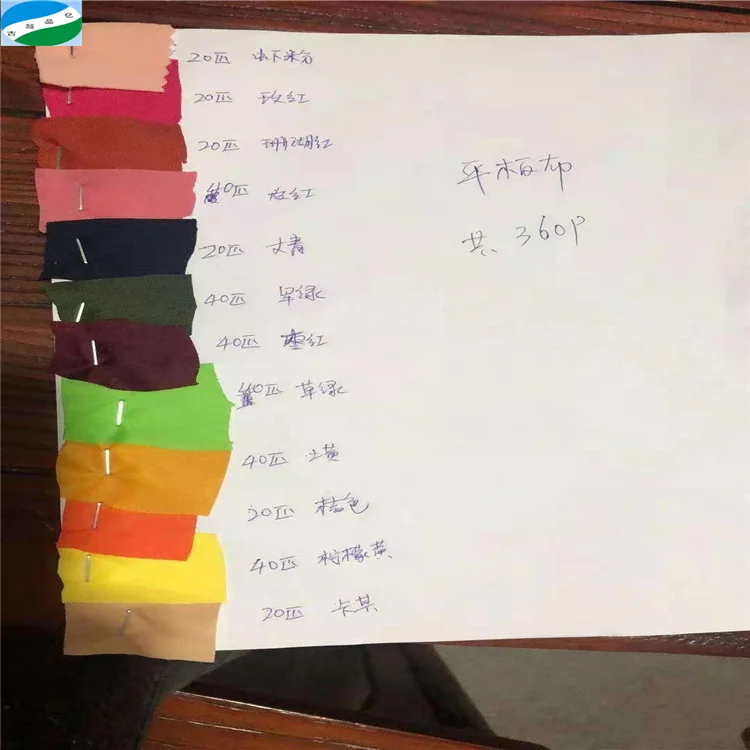 20匹 虾粉
20匹 玫红
20匹 珊瑚红
40匹 红
20匹 丈青
40匹 军绿
40匹 枣红
40匹 草绿
40匹 土黄
20匹 桔色
40匹 柠檬黄
20匹 卡其
平板布
共 360P